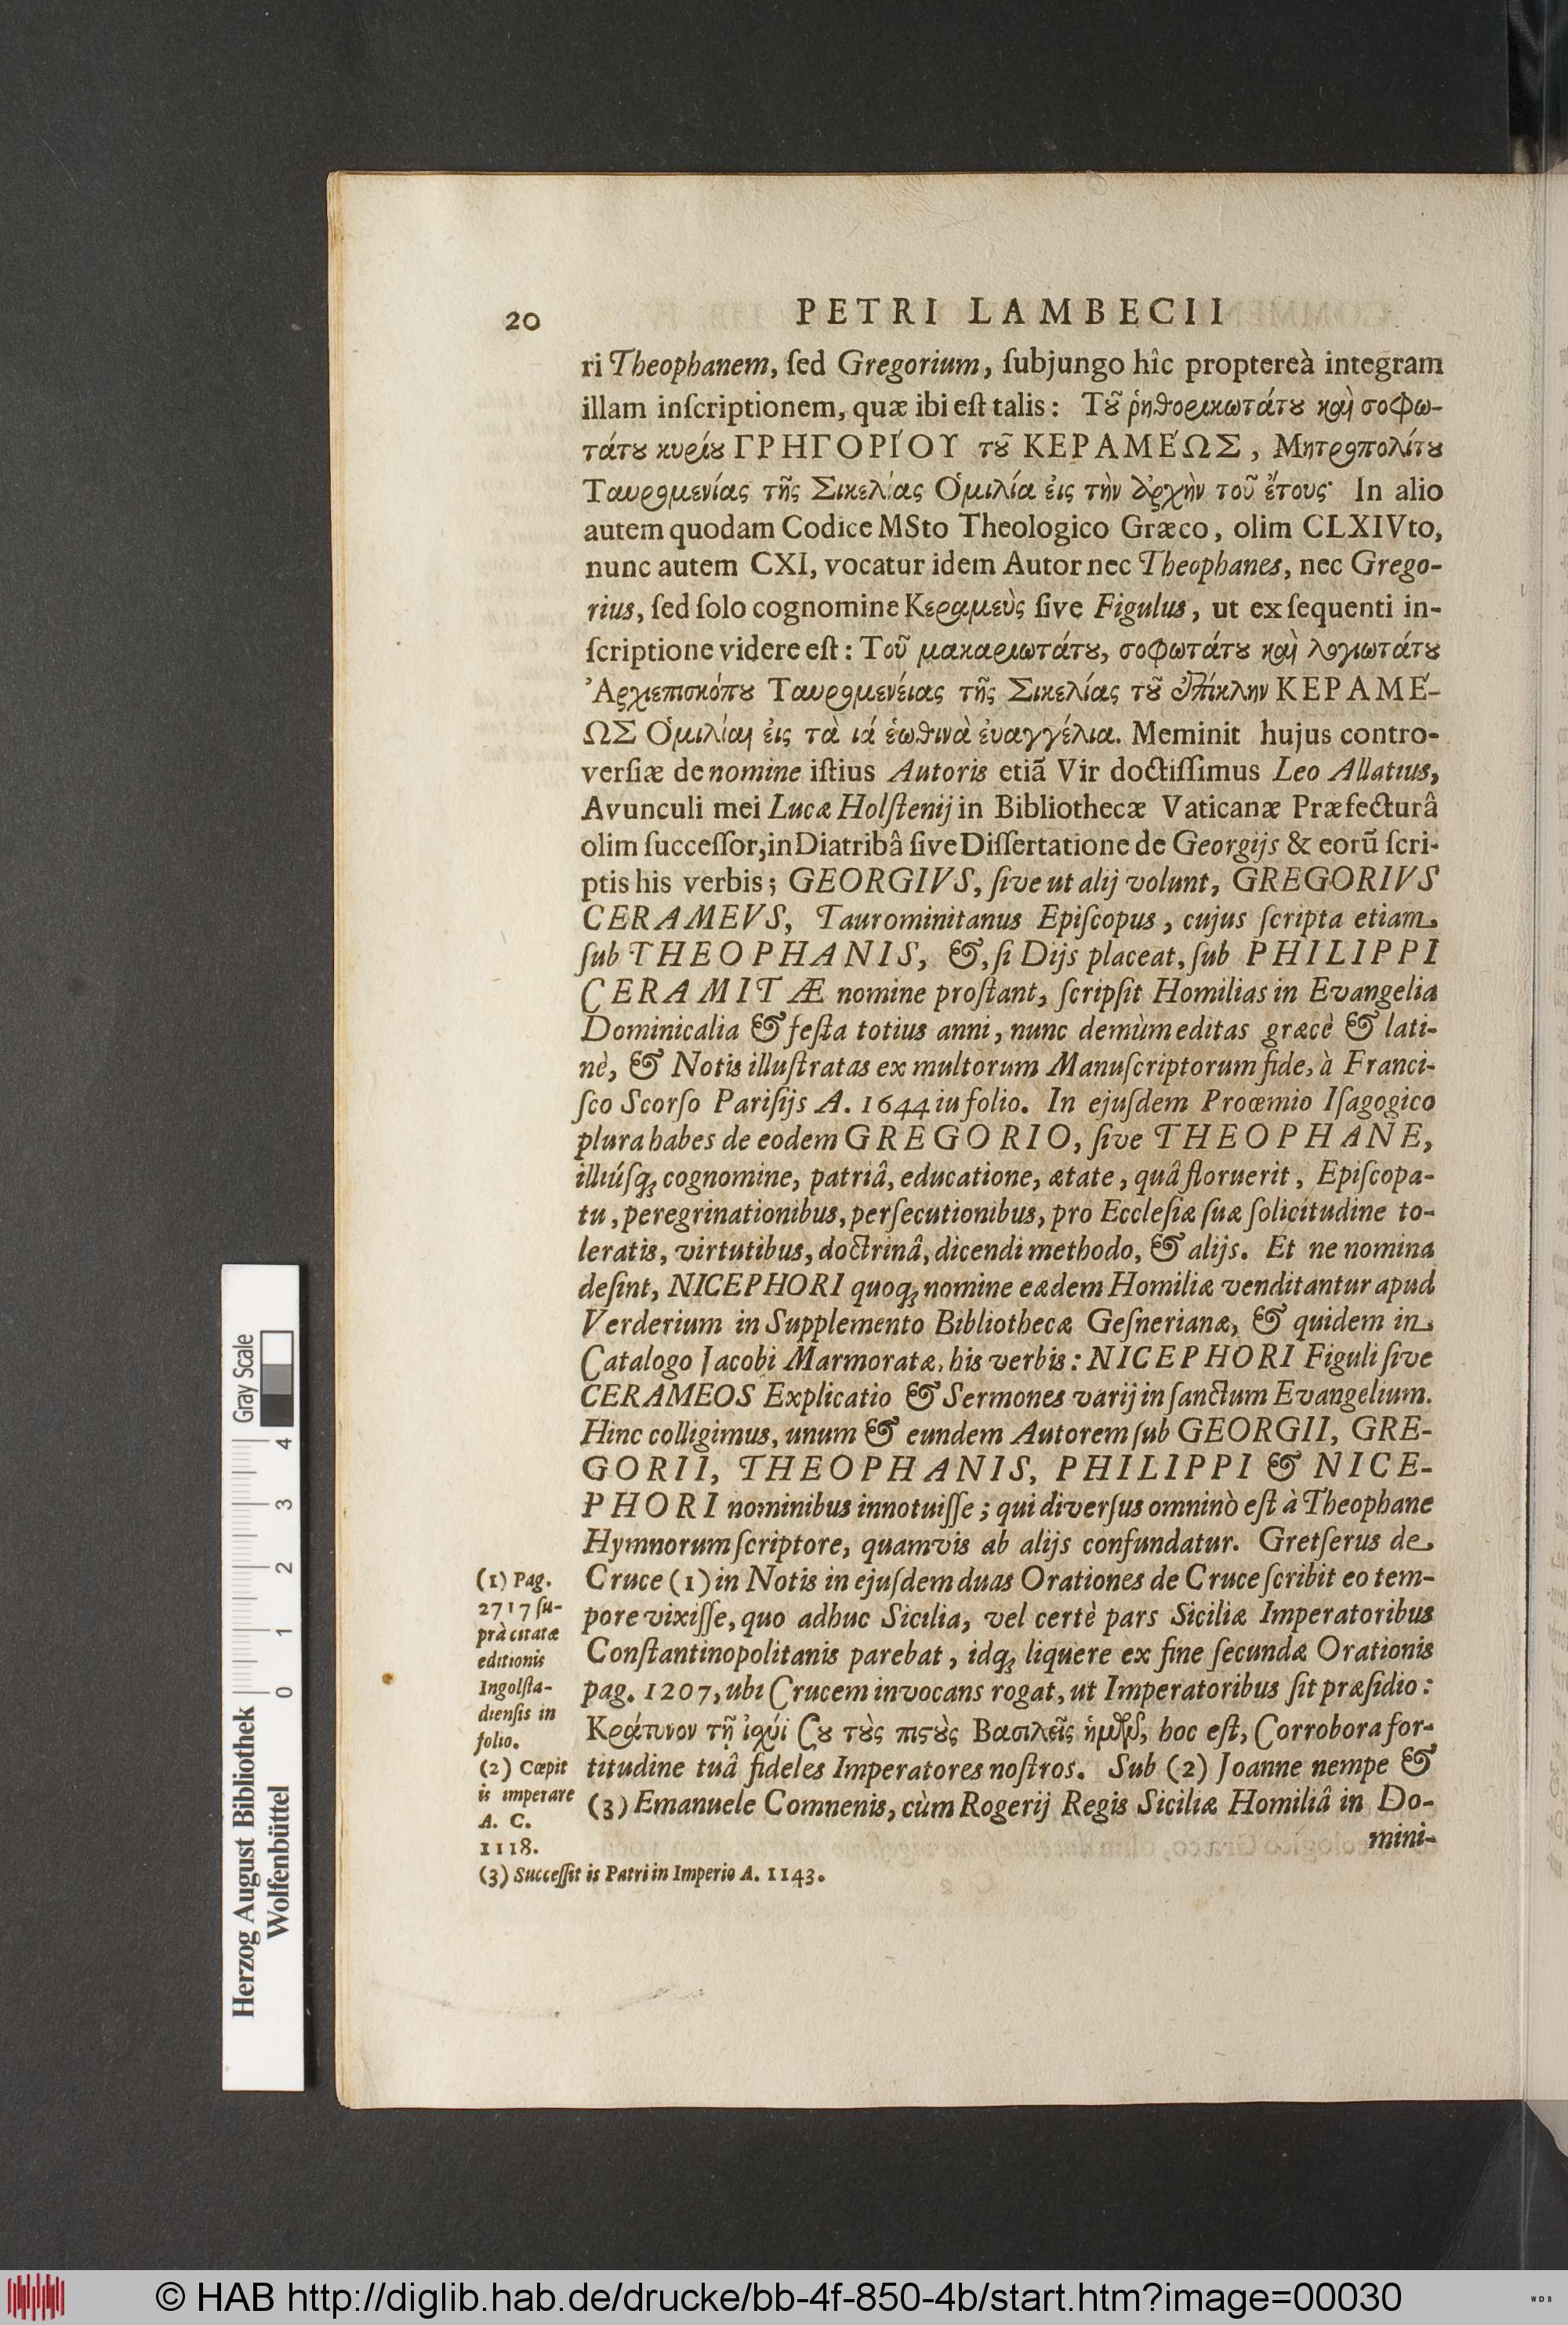 20 PETRI LAMBECII
ri Theophanem, ſed Gregorium, ſubjungo hîc proptereà integram
illam inſcriptionem, quæ ibi eſt talis: Τοῦ ῥητορικωτάτου καὶ σοφω-
τάτου κυρίου ΓΡΗΓΟΡΊΟΥ τοῦ ΚΕΡΑΜΈΩΣ, Μητροπολίτου
Ταυρομενίας τῆς Σικελίας Ὁμιλία ἐις τὴν ἀρχὴν τοῦ ἔτους· In alio
autem quodam Codice MSto Theologico Græco, olim CLXIVto,
nunc autem CXI, vocatur idem Autor nec Theophanes, nec Grego-
rius, ſed ſolo cognomine Κεραμεὺς ſive Figulus, ut ex ſequenti in-
ſcriptione videre eſt: Τοῦ μακαριωτάτου, σοφωτάτου καὶ λογιωτάτου
Ἀρχιεπισκόπου Ταυρομενέιας τῆς Σικελίας τοῦ ἐπίκλην ΚΕΡΑΜΈ-
ΩΣ Ὁμιλίαι ἐις τὰ ιά ἑωθινὰ ἐυαγγέλια. Meminit hujus contro-
verſiæ de nomine iſtius Autoris etiã Vir doctiſſimus Leo Allatius,
Avunculi mei Lucæ Holſtenij in Bibliothecæ Vaticanæ Præfecturâ
olim ſucceſſor, in Diatribâ ſive Diſſertatione de Georgijs & eorũ ſcri-
ptis his verbis; GEORGIVS, ſive ut alij volunt, GREGORIVS
CERAMEVS, Taurominitanus Epiſcopus, cujus ſcripta etiam
ſub THEOPHANIS, &, ſi Dijs placeat, ſub PHILIPPI
CERAMITÆ nomine proſtant, ſcripſit Homilias in Evangelia
Dominicalia & feſta totius anni, nunc demùm editas græcè & lati-
nè, & Notis illuſtratas ex multorum Manuſcriptorum fide, à Franci-
ſco Scorſo Pariſijs A. 1644 iu folio. In ejuſdem Proœmio Iſagogico
plura habes de eodem GREGORIO, ſive THEOPHANE,
illiúſq; cognomine, patriâ, educatione, ætate, quâ floruerit, Epiſcopa-
tu, peregrinationibus, perſecutionibus, pro Eccleſiæ ſuæ ſolicitudine to-
leratis, virtutibus, doctrinâ, dicendi methodo, & alijs. Et ne nomina
deſint, NICEPHORI quoq; nomine eædem Homiliæ venditantur apud
Verderium in Supplemento Bibliothecæ Geſnerianæ, & quidem in
Catalogo Jacobi Marmoratæ, his verbis: NICEPHORI Figuli ſive
CERAMEOS Explicatio & Sermones varij in ſanctum Evangelium.
Hinc colligimus, unum & eundem Autorem ſub GEORGII, GRE-
GORII, THEOPHANIS, PHILIPPI & NICE-
PHORI nominibus innotuiſſe; qui diverſus omninò eſt à Theophane
Hymnorum ſcriptore, quamvis ab alijs confundatur. Gretſerus de
Cruce (1) in Notis in ejuſdem duas Orationes de Cruce ſcribit eo tem-
pore vixiſſe, quo adhuc Sicilia, vel certè pars Siciliæ Imperatoribus
Conſtantinopolitanis parebat, idq; liquere ex fine ſecundæ Orationis
pag. 1207, ubi Crucem invocans rogat, ut Imperatoribus ſit præſidio:
Κράτυνον τῇ ἰσχύϊ σου τοὺς πιστοὺς Βασιλεῖς ἡμῶν, hoc eſt, Corrobora for-
titudine tuâ fideles Imperatores noſtros. Sub (2) Joanne nempe &
(3) Emanuele Comnenis, cùm Rogerij Regis Siciliæ Homiliâ in Do-
mini-
(1) Pag.
2717 ſu-
prà citatæ
editionis
Ingolſta-
dienſis in
folio.
(2) Cœpit
is imperare
A. C.
1118.
(3) Succeſſit is Patri in Imperio A. 1143.
Herzog August Bibliothek
Wolfenbüttel
0 1 2 3 4
Gray Scale
© HAB http://diglib.hab.de/drucke/bb-4f-850-4b/start.htm?image=00030
WDB